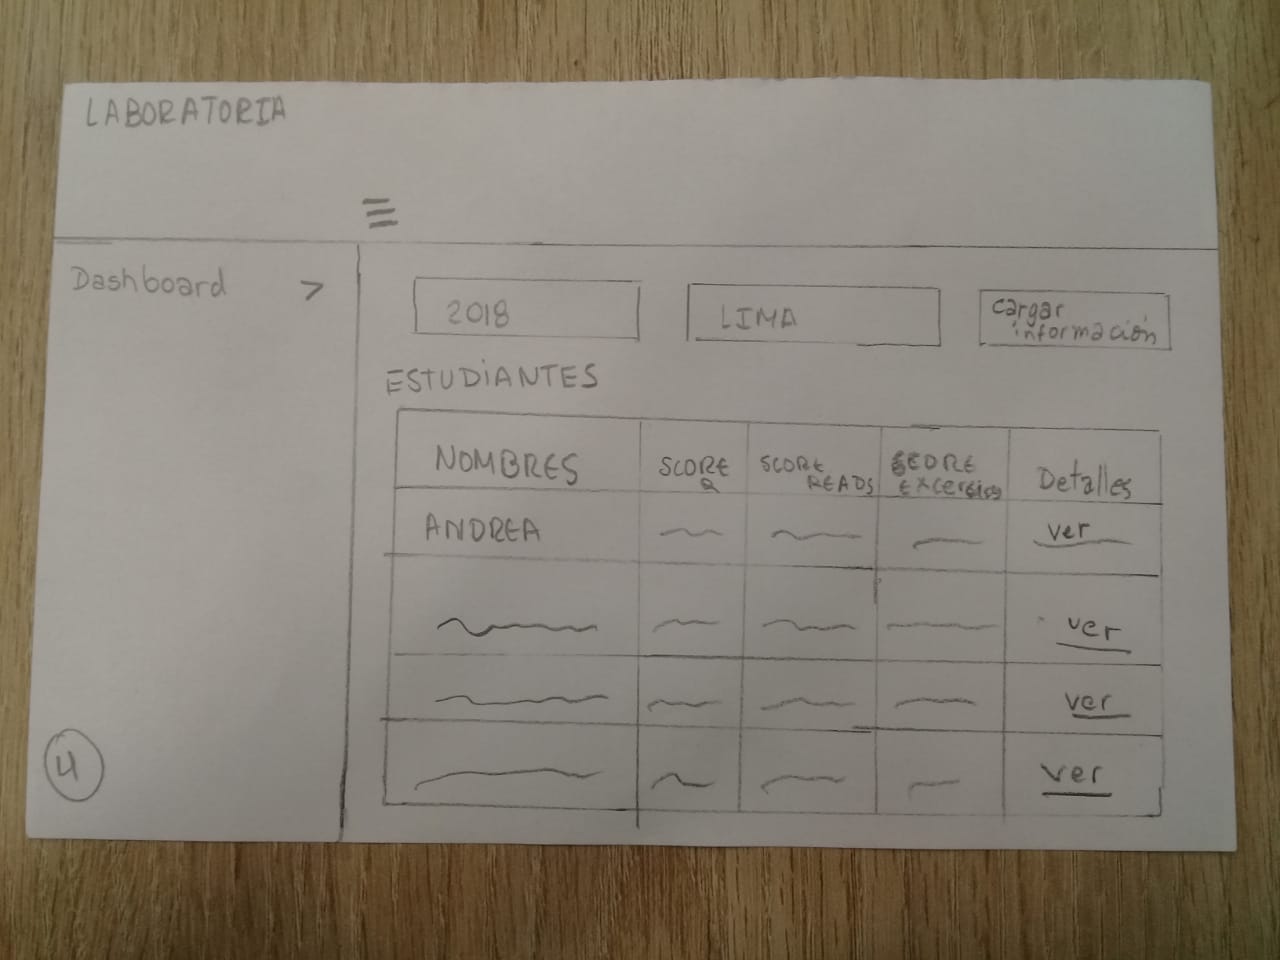 LABORATORIA
Dashboard >
2018
LIMA
cargar
información
ESTUDIANTES
NOMBRES
SCORE
Q
SCORE
READS
SCORE
Detalles
ANDREA
ver
ver
ver
ver
4